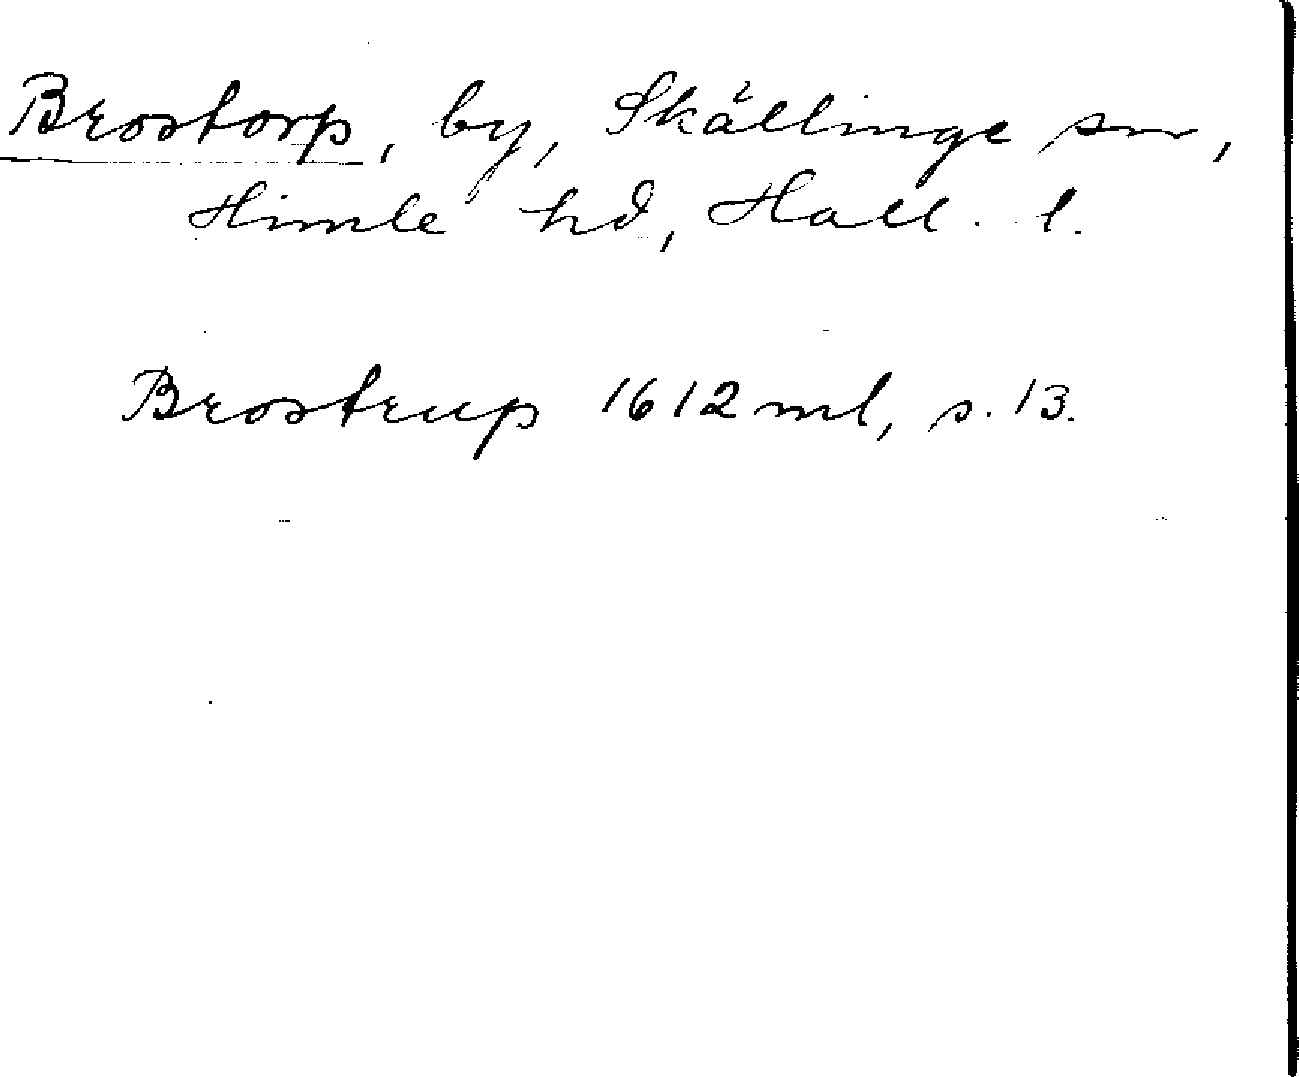 Brostorp, by, Skällinge sn,
Himle hd, Hall. l.
Brostrup 1612 ml, s. 13.